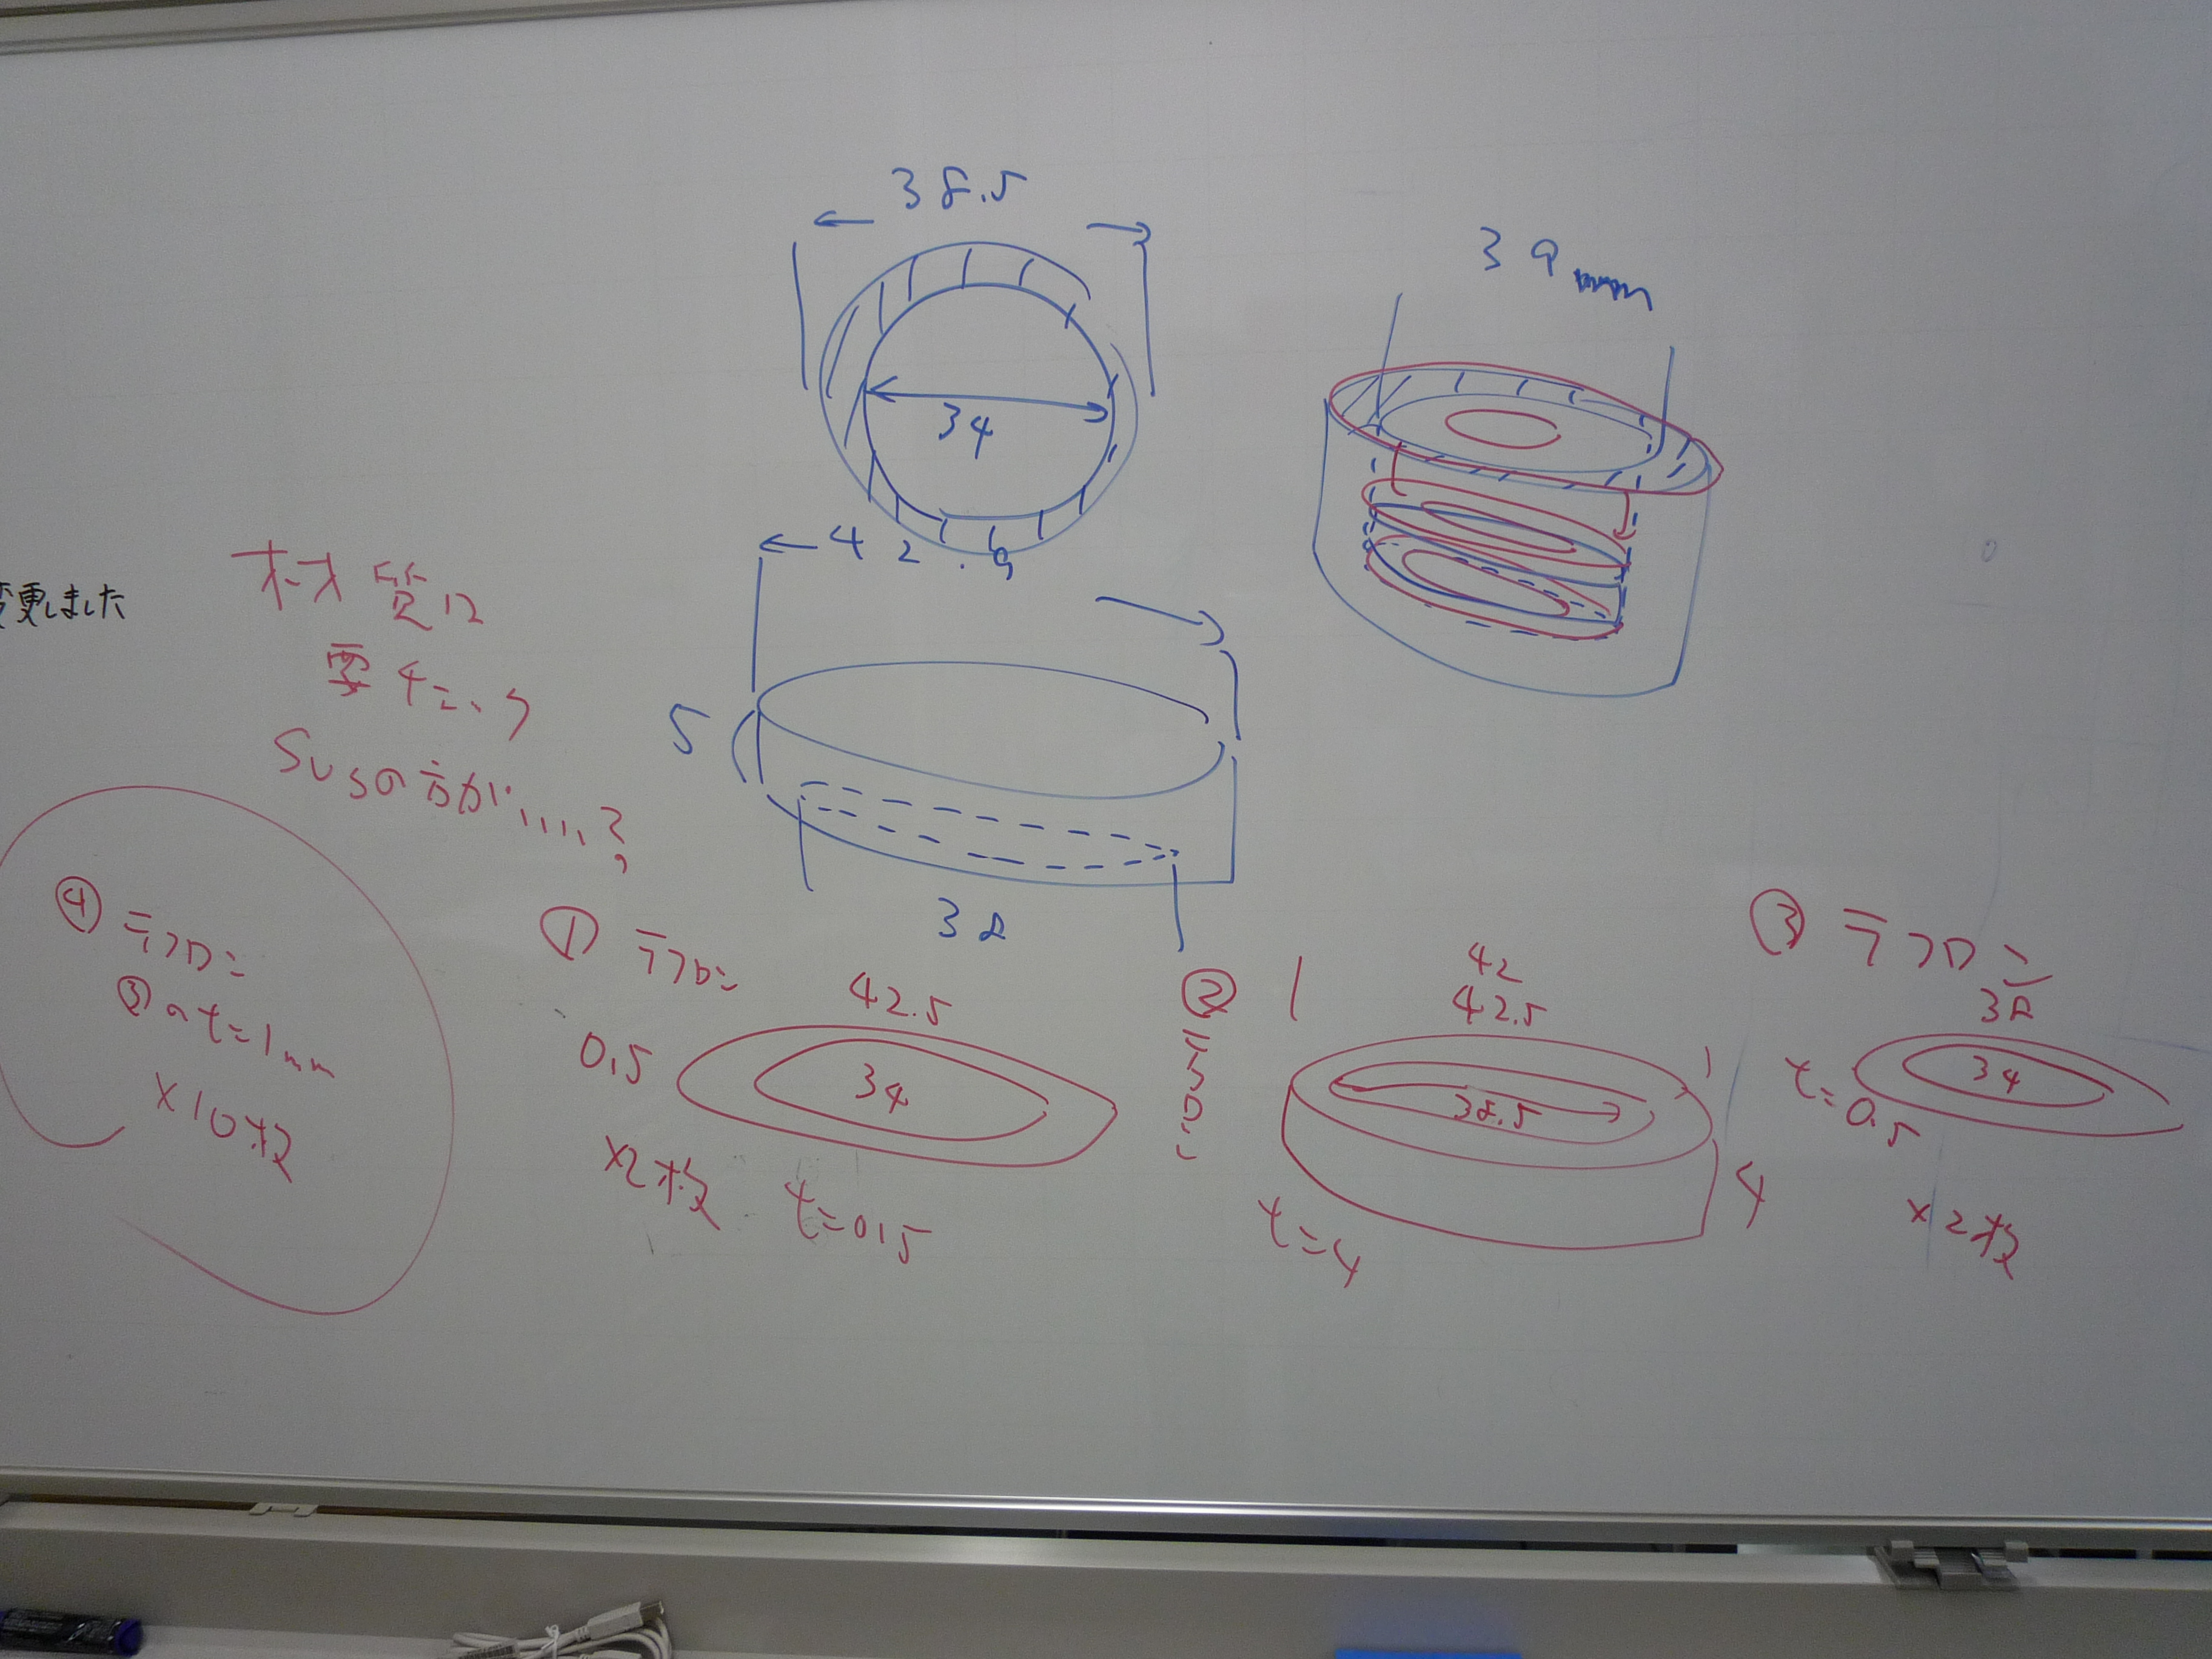 38.5
34
39mm
42.9
5
38
変更しました
材質は
要チェック
SUSの方が.....?
④ テフロン
③のt=1mm
×10枚
① テフロン
42.5
0.5
34
×2枚
t=0.5
②
42
42.5
38.5
4
t=4
③ テフロン
38
34
t=0.5
×2枚